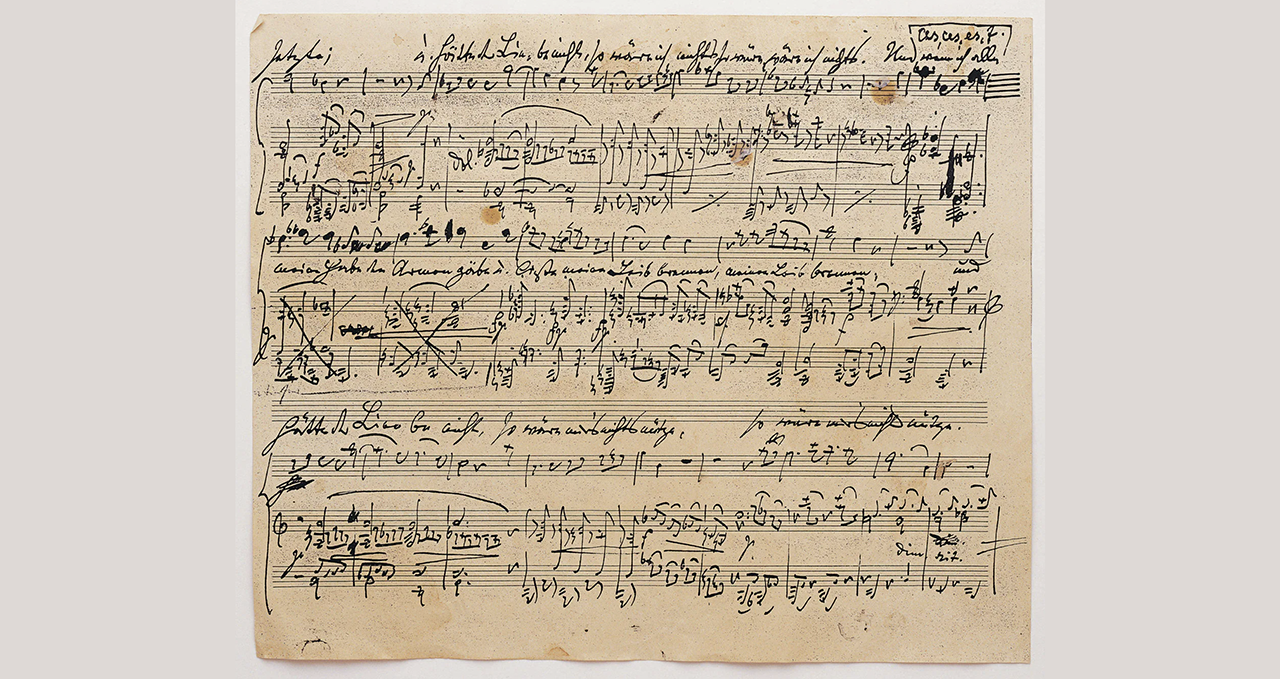 ces, ces, es, f.
setzte; u. hätte der Liebe nicht, so wäre ich nichts so wäre, wäre ich nichts. Und wenn ich alle
dol.
meine Habe den Armen gäbe u. ließe meinen Leib brennen, meinen Leib brennen, und
hätte der Liebe nicht, so wäre mirs nichts nütze, so wäre mirs nichts nütze.
dim rit.